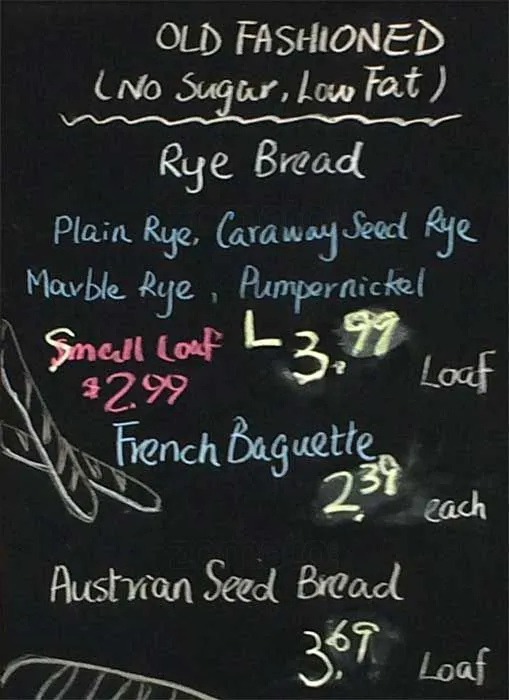 OLD FASHIONED
(No Sugar, Low Fat)
Rye Bread
Plain Rye, Caraway Seed Rye
Marble Rye, Pumpernickel
Small Loaf L 3.99 Loaf
$2.99
French Baguette
2.39 each
Austrian Seed Bread
3.69 Loaf